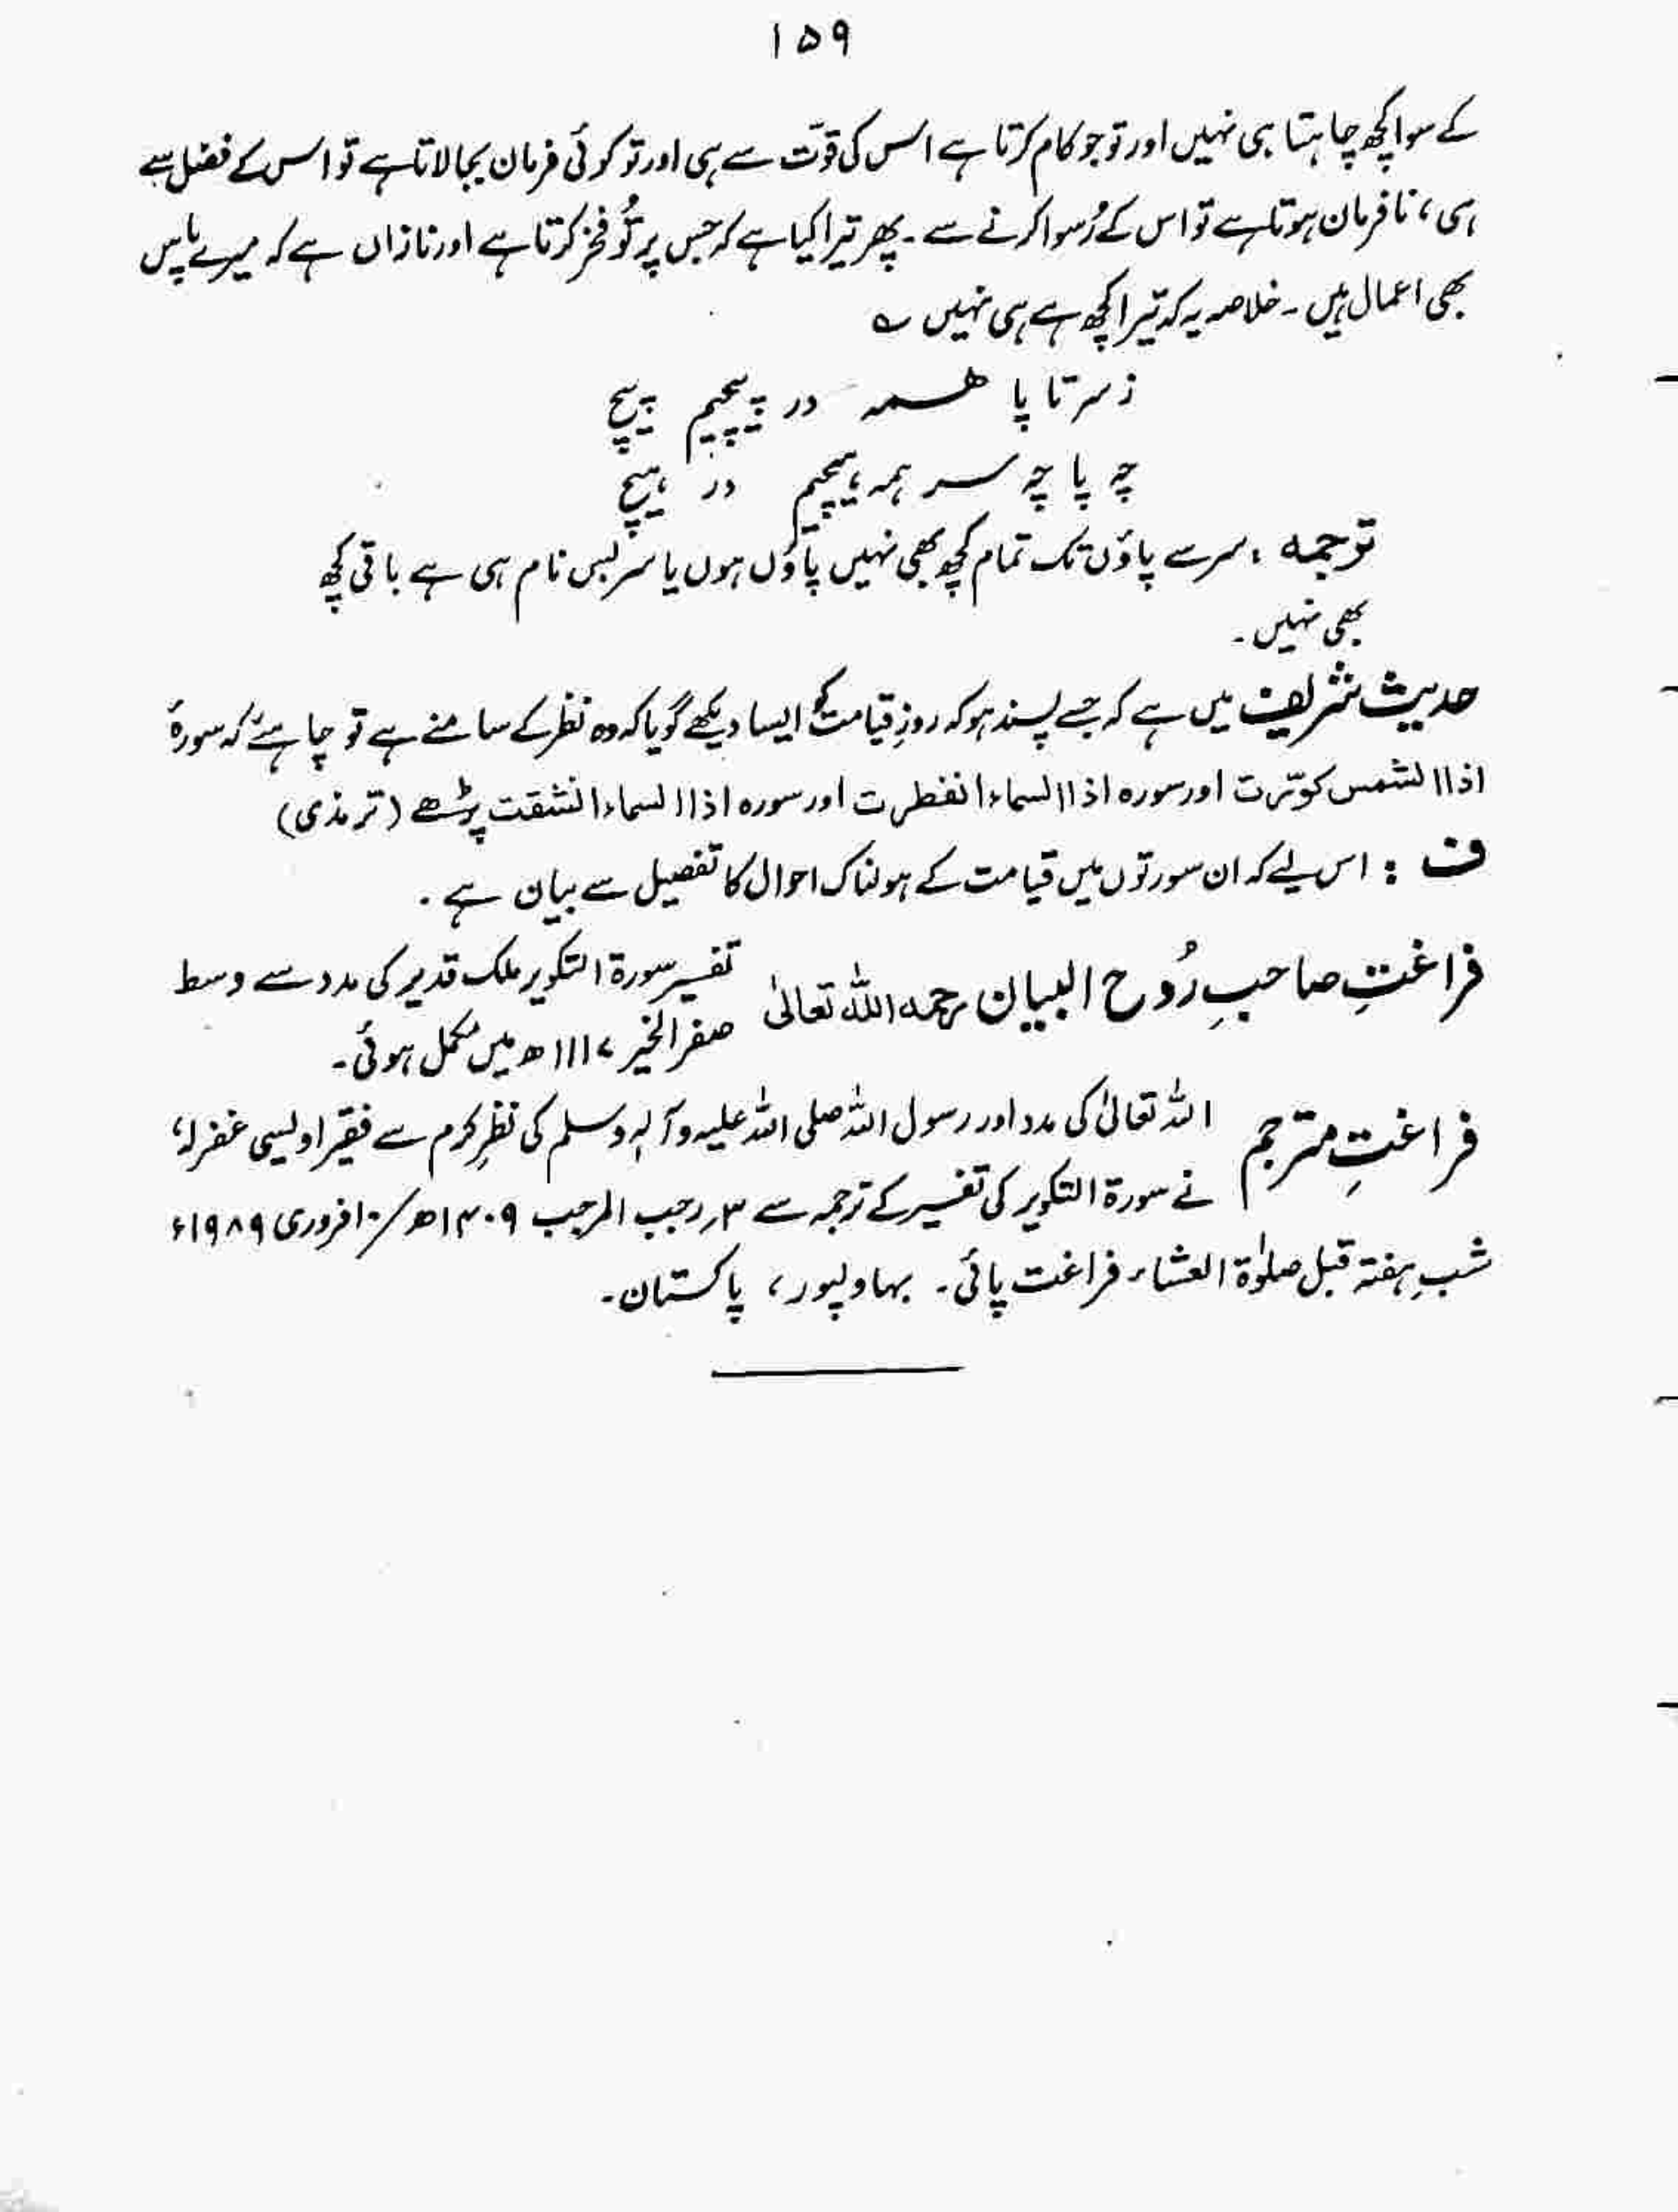 ۱۵۹
کے سوا کچھ چاہتا ہی نہیں اور تو جو کام کرتا ہے اس کی قوّت سے ہی اور تو کوئی فرمان بجا لاتا ہے تو اس کے فضل سے
ہی، نافرمان ہوتا ہے تو اس کے رُسوا کرنے سے ۔ پھر تیرا کیا ہے کہ جس پر تُو فخر کرتا ہے اور نازاں ہے کہ میرے پاس
بھی اعمال ہیں ۔ خلاصہ یہ کہ تیرا کچھ ہے ہی نہیں ؎
ز سر تا پا ہمہ در پیچیم پیچ
چہ پا چہ سر ہمہ ہیچیم در ہیچ
ترجمہ : سر سے پاؤں تک تمام کچھ بھی نہیں پاؤں ہوں یا سر بس نام ہی ہے باقی کچھ
بھی نہیں ۔
حدیث شریف میں ہے کہ جسے پسند ہو کہ روزِ قیامت کو ایسا دیکھے گویا کہ وہ نظر کے سامنے ہے تو چاہئے کہ سورۂ
اذا الشمس کوّرت اور سورہ اذا السماء انفطرت اور سورہ اذا السماء انشقت پڑھے (ترمذی)
ف : اس لیے کہ ان سورتوں میں قیامت کے ہولناک احوال کا تفصیل سے بیان ہے ۔
فراغتِ صاحبِ رُوح البیان رحمہ اللہ تعالیٰ تفسیر سورۃ التکویر ملک قدیر کی مدد سے وسط
صفر الخیر ۱۱۱۷ھ میں مکمل ہوئی ۔
فراغتِ مترجم اللہ تعالیٰ کی مدد اور رسول اللہ صلی اللہ علیہ وآلہٖ وسلم کی نظرِ کرم سے فقیر اویسی غفرلہٗ
نے سورۃ التکویر کی تفسیر کے ترجمہ سے ۳ رجب المرجب ۱۴۰۹ھ / ۱۰ فروری ۱۹۸۹ء
شبِ ہفتہ قبل صلوٰۃ العشاء فراغت پائی ۔ بہاولپور ، پاکستان ۔